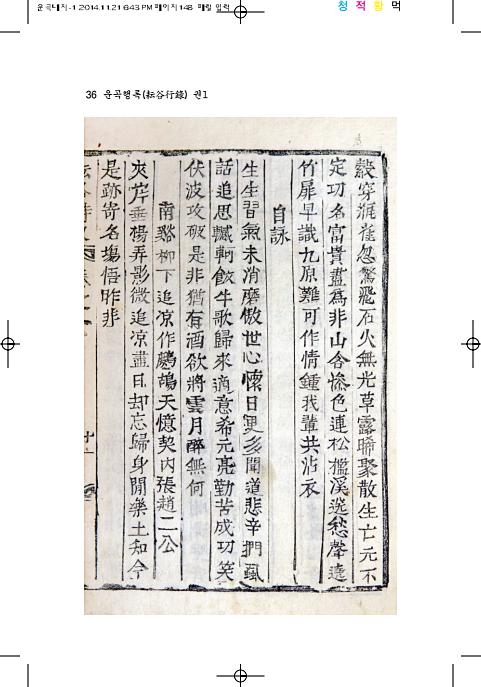 운곡내지-1 2014.11.21 6:43 PM 페이지148 매킨 입력
청 적 황 먹
36 운곡행록(耘谷行錄) 권1
縠穿甁雀忽驚飛石火無光草露晞聚散生亡元不
定功名富貴盡爲非山含慘色連松檻溪送愁聲遶
竹扉早識九原難可作情鍾我輩共沾衣
自詠
生生習氣未消磨傲世心懷日更多聞道悲辛捫虱
話追思轗軻飯牛歌歸來適意希元亮勤苦成功笑
伏波攻破是非猶有酒欲將雲月醉無何
南谿柳下追凉作鷓鴣天憶契內張趙二公
夾岸垂楊弄影微追凉盡日却忘歸身閒樂土知今
是跡寄名塲悟昨非